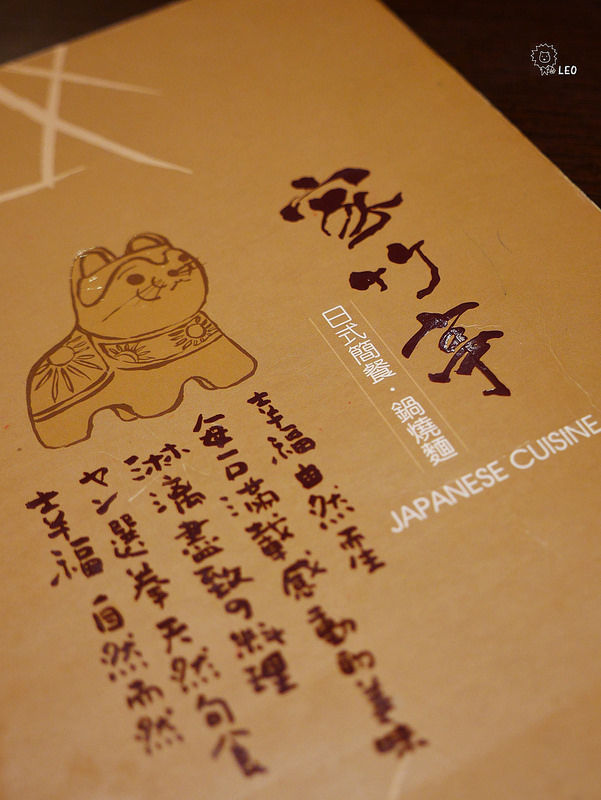 家竹亭
日式簡餐・鍋燒麵
JAPANESE CUISINE
幸福自然而生
每一口滿載感動的美味
淋漓盡致の料理
ヤン選拳天然旬食
幸福 自然而然
LEO